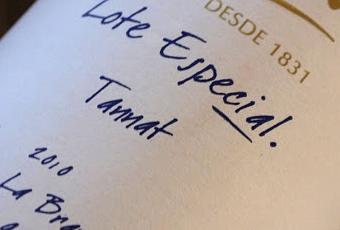 DESDE 1831
Lote Especial.
Tannat
2010
La